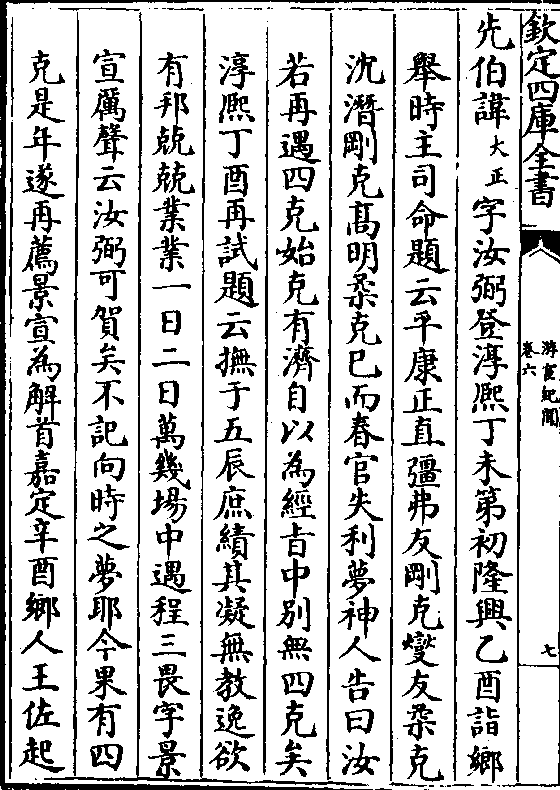 欽定四庫全書
游宦紀聞
卷六
七
先伯諱大正字汝弼登淳熙丁未第初隆興乙酉詣鄉
舉時主司命題云平康正直彊弗友剛克燮友柔克
沈潛剛克髙明柔克已而春官失利夢神人告曰汝
若再遇四克始克有濟自以為經㫖中别無四克矣
淳熙丁酉再試題云撫于五辰庶績其凝無教逸欲
有邦兢兢業業一日二日萬幾場中遇程三畏字景
宣厲聲云汝弼可賀矣不記向時之夢耶今果有四
克是年遂再薦景宣為解首嘉定辛酉鄉人王佐起